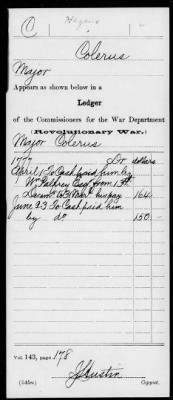 C Hazens
Colerus
Major
Appears as shown below in a
Ledger
of the Commissioners for the War Department
(Revolutionary War.)
Major Colerus
1777 Dr dollars
April 1 To Cash paid him by
Wm Palfrey Esqr from 13th
Decemr to 3 Mar. his pay 164
June 23 To Cash paid him
by do 150
Vol. 143, page 178
J Austin
(545c) Copyist.